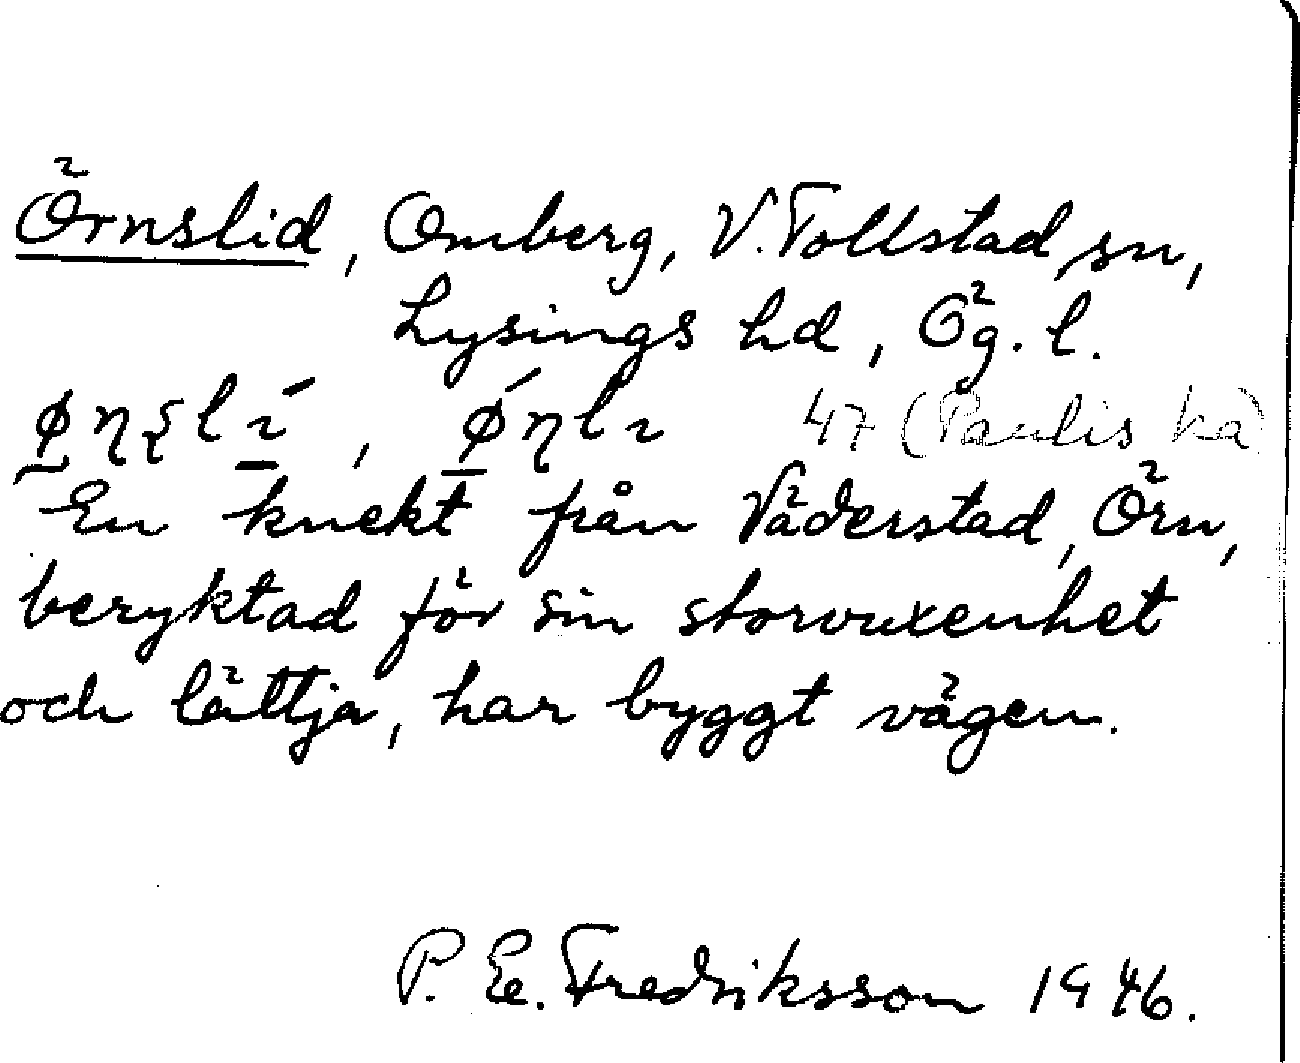 Örnslid, Omberg, V. Tollstad sn,
Lysings hd, Ög. l.
47 (Paulis ka)
En knekt från Väderstad, Örn,
beryktad för sin storvuxenhet
och lättja, har byggt vägen.
P. E. Fredriksson 1946.